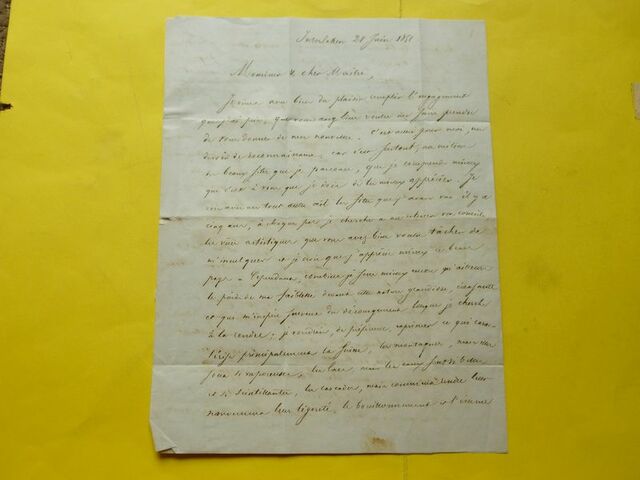 Interlaken 28 Juin 1851
Monsieur & cher Maître,
Je viens avec bien du plaisir remplir l'engagement
que j'ai pris, que vous avez bien voulu me faire prendre
de vous donner de mes nouvelles. C'est aussi pour moi, un
devoir de reconnaissance, car c'est surtout, au milieu
de beaux sites que je parcours, que je comprends mieux
que c'est à vous que je dois de les mieux apprécier. Je
tout autre œil les sites que j'avais vus il y a
cinq ans, à chaque pas je cherche à me conseils
les vues artistiques, que vous avez bien voulu tâcher de
m'inculquer et je crois que j'apprécie mieux ce beau
pays. Cependant, combien je sens mieux encore qu'ailleurs
le poids de ma faiblesse devant cette nature grandiose,
ce que m'inspire du découragement lorsque je cherche
à la rendre; je voudrais, de préférence, exprimer ce qui carac-
térise principalement la Suisse, les montagnes, mais
vaporeuses, les lacs, mais les eaux
et si scintillantes, les cascades, mais comment rendre leur
leur légèreté, le bouillonnement et l'écume